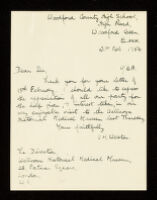 Woodford County High School,
High Road,
Woodford Green
Essex
Dear Sir,
Thank you for your letter of
February. I should like to express
the appreciation of all our party for
the help you
our enjoyable visit to the Wellcome
Historical Medical Museum last Thursday.
Yours faithfully,
The Director
Wellcome Historical Medical Museum,
Square,
London